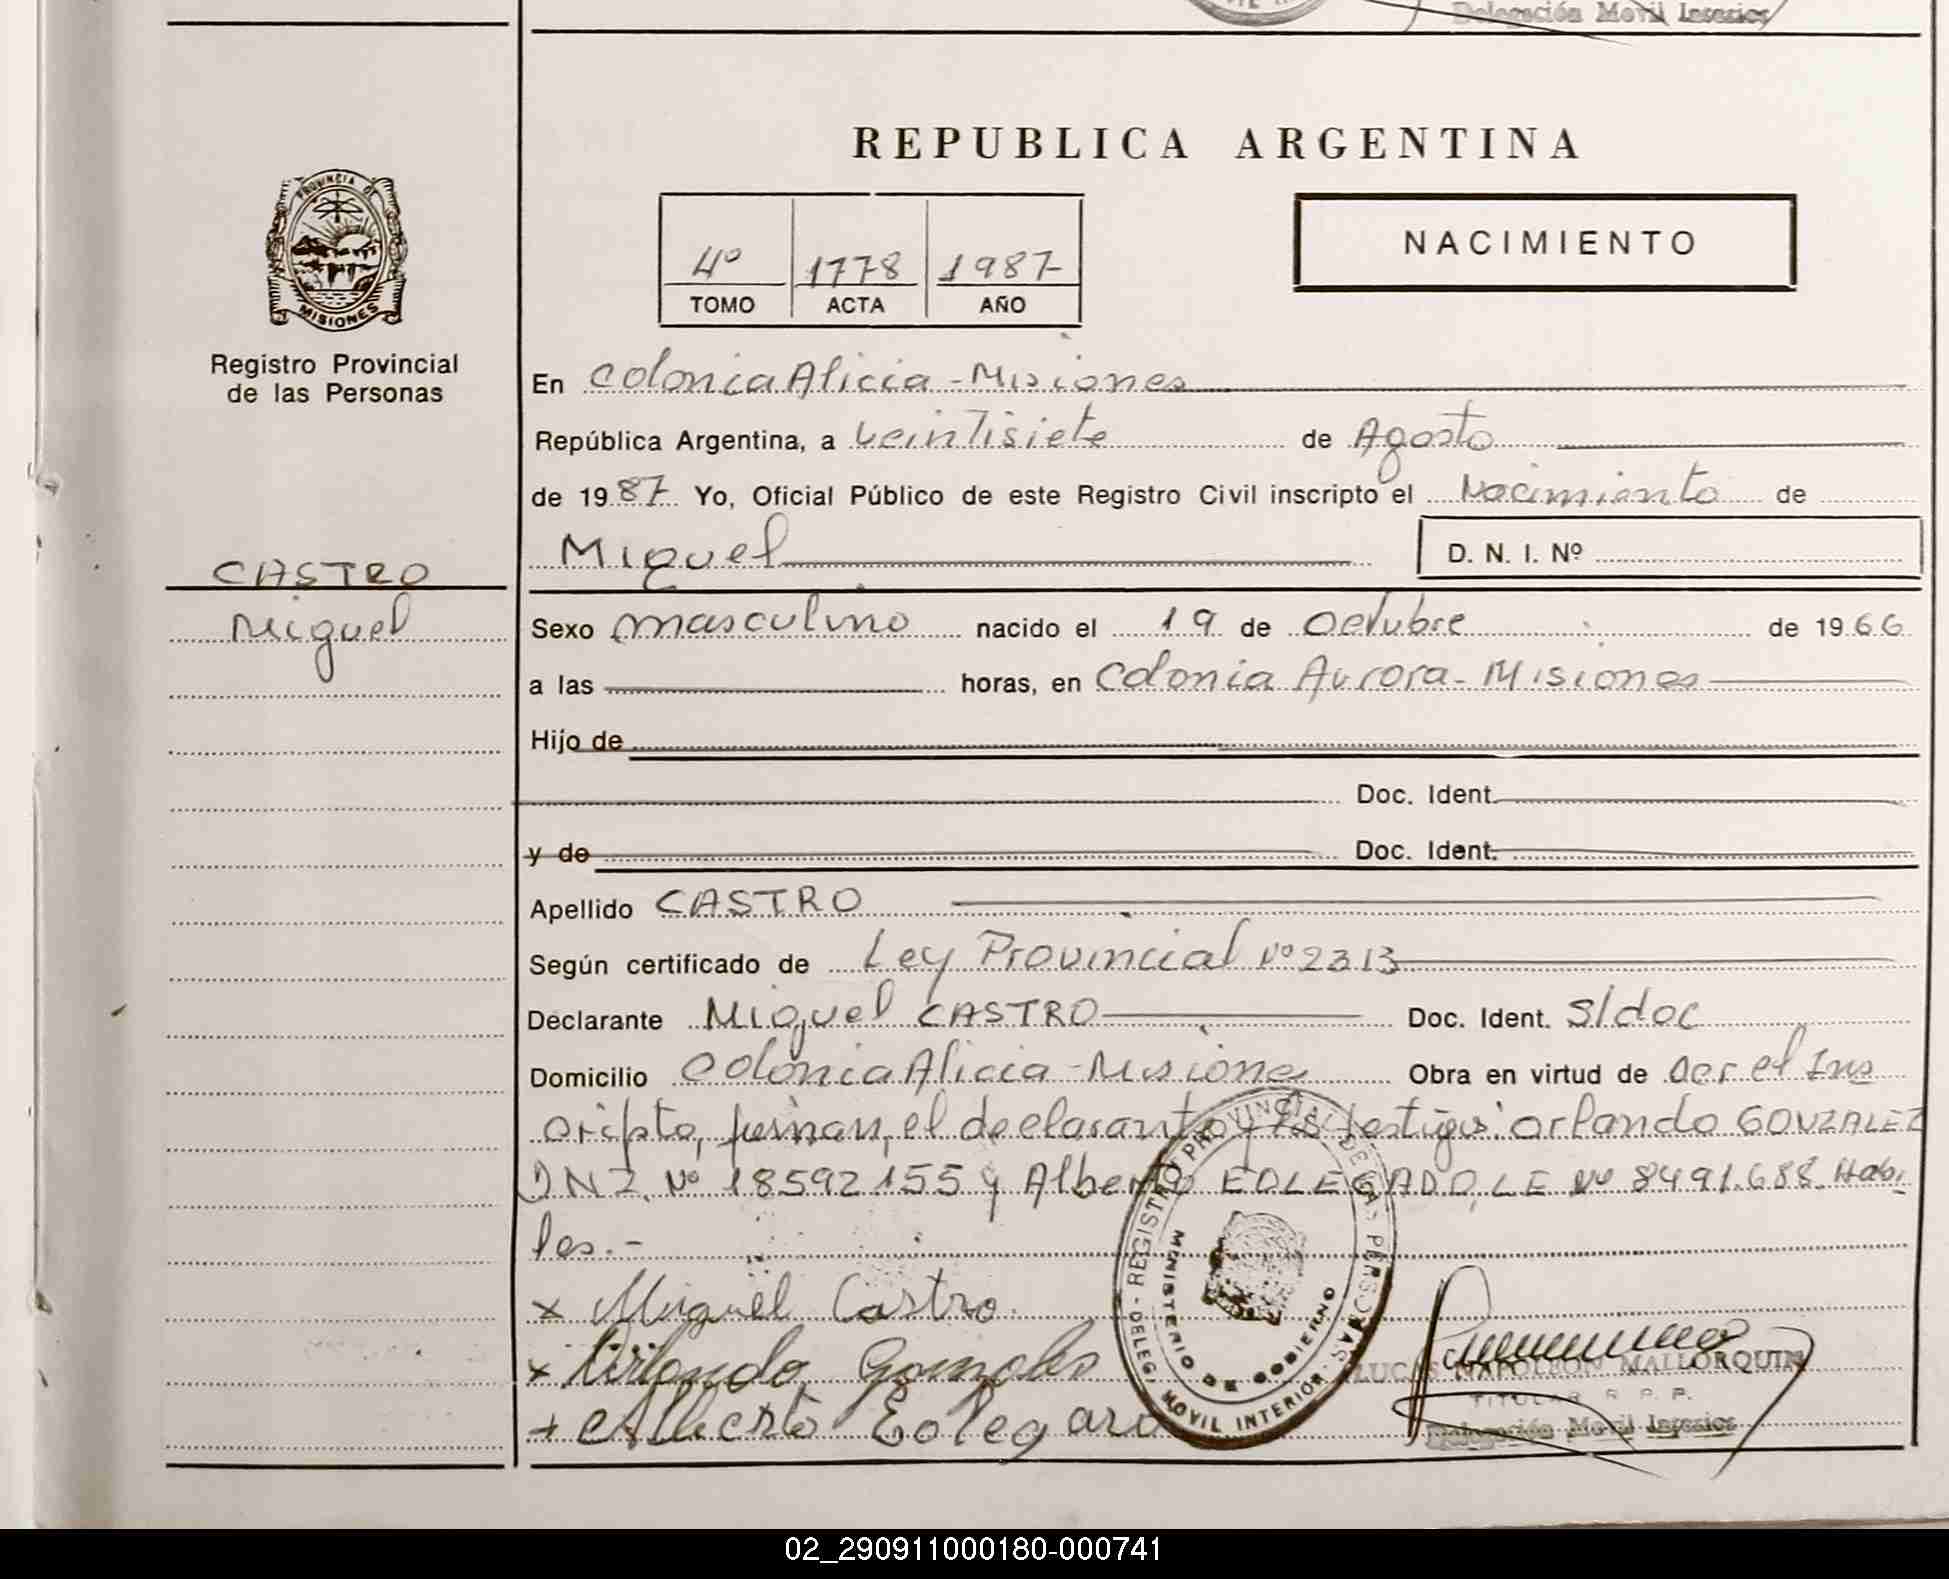 Delegación Movil Interior
REPUBLICA ARGENTINA
NACIMIENTO
4º 1778 1987
TOMO ACTA AÑO
PROVINCIA DE
MISIONES
Registro Provincial
de las Personas
En Colonia Alicia - Misiones
República Argentina, a veintisiete de Agosto
de 1987 Yo, Oficial Público de este Registro Civil inscripto el Nacimiento de
Miguel D. N. I. Nº
CASTRO
Miguel
Sexo masculino nacido el 19 de Octubre de 1966
a las horas, en Colonia Aurora - Misiones
Hijo de
Doc. Ident.
y de Doc. Ident.
Apellido CASTRO
Según certificado de Ley Provincial Nº 2313
Declarante Miguel CASTRO Doc. Ident. S/doc
Domicilio Colonia Alicia - Misiones Obra en virtud de ser el Ins
cripto, firman, el declarante y los testigos: Orlando GONZALEZ
DNI. Nº 18592155 y Alberto EOLEGADO, LE Nº 8491.688. Habi
les.-
x Miguel Castro
x Orlando Gonzales
x Alberto Eolegaro
REGISTRO PROVINCIAL DE LAS PERSONAS - DELEG. MOVIL INTERIOR -
MINISTERIO DE GOBIERNO
LUCAS NAPOLEON MALLORQUIN
TITULAR R. P. P.
Delegación Movil Interior
02_290911000180-000741